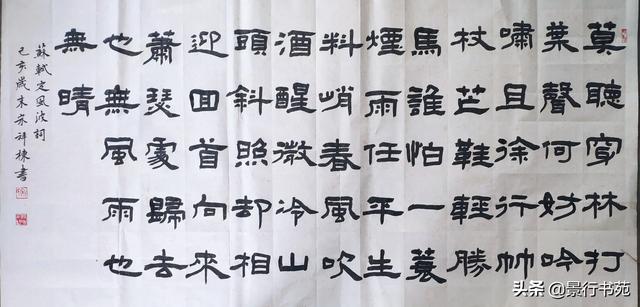 莫聽穿林打
葉聲何妨吟
嘯且徐行竹
杖芒鞋輕勝
馬誰怕一蓑
煙雨任平生
料峭春風吹
酒醒微冷山
頭斜照却相
迎回首向來
蕭瑟處歸去
也無風雨也
無晴
蘇軾定風波詞
己亥歲末祥棟書
头条 @景行书苑